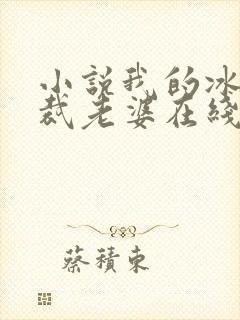 小説我的冰
裁老婆在綫
蔡積東